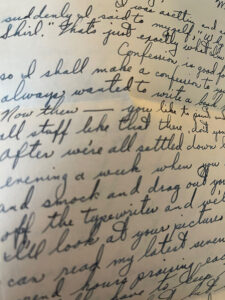 I was
suddenly I said to myself, "Why
Shirl." That's just exactly what
Confession is good for
so I shall make a confession to
always wanted to write a
Now then — you like to paint
all stuff like that there, but
After we're all settled down
evening a week when you
and smock and drag out you
off the typewriter and we'll
I'll look at your pictures
can read my latest
hours praising each
have to